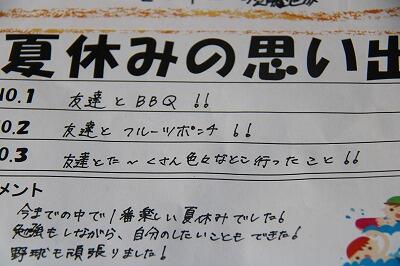 夏休みの思い出
NO.1 友達とBBQ!!
NO.2 友達とフルーツポンチ!!
NO.3 友達とた～くさん色々なとこ行ったこと!!
メント
今までの中で1番楽しい夏休みでした!
勉強もしながら、自分のしたいこともできた!
野球も頑張りました!